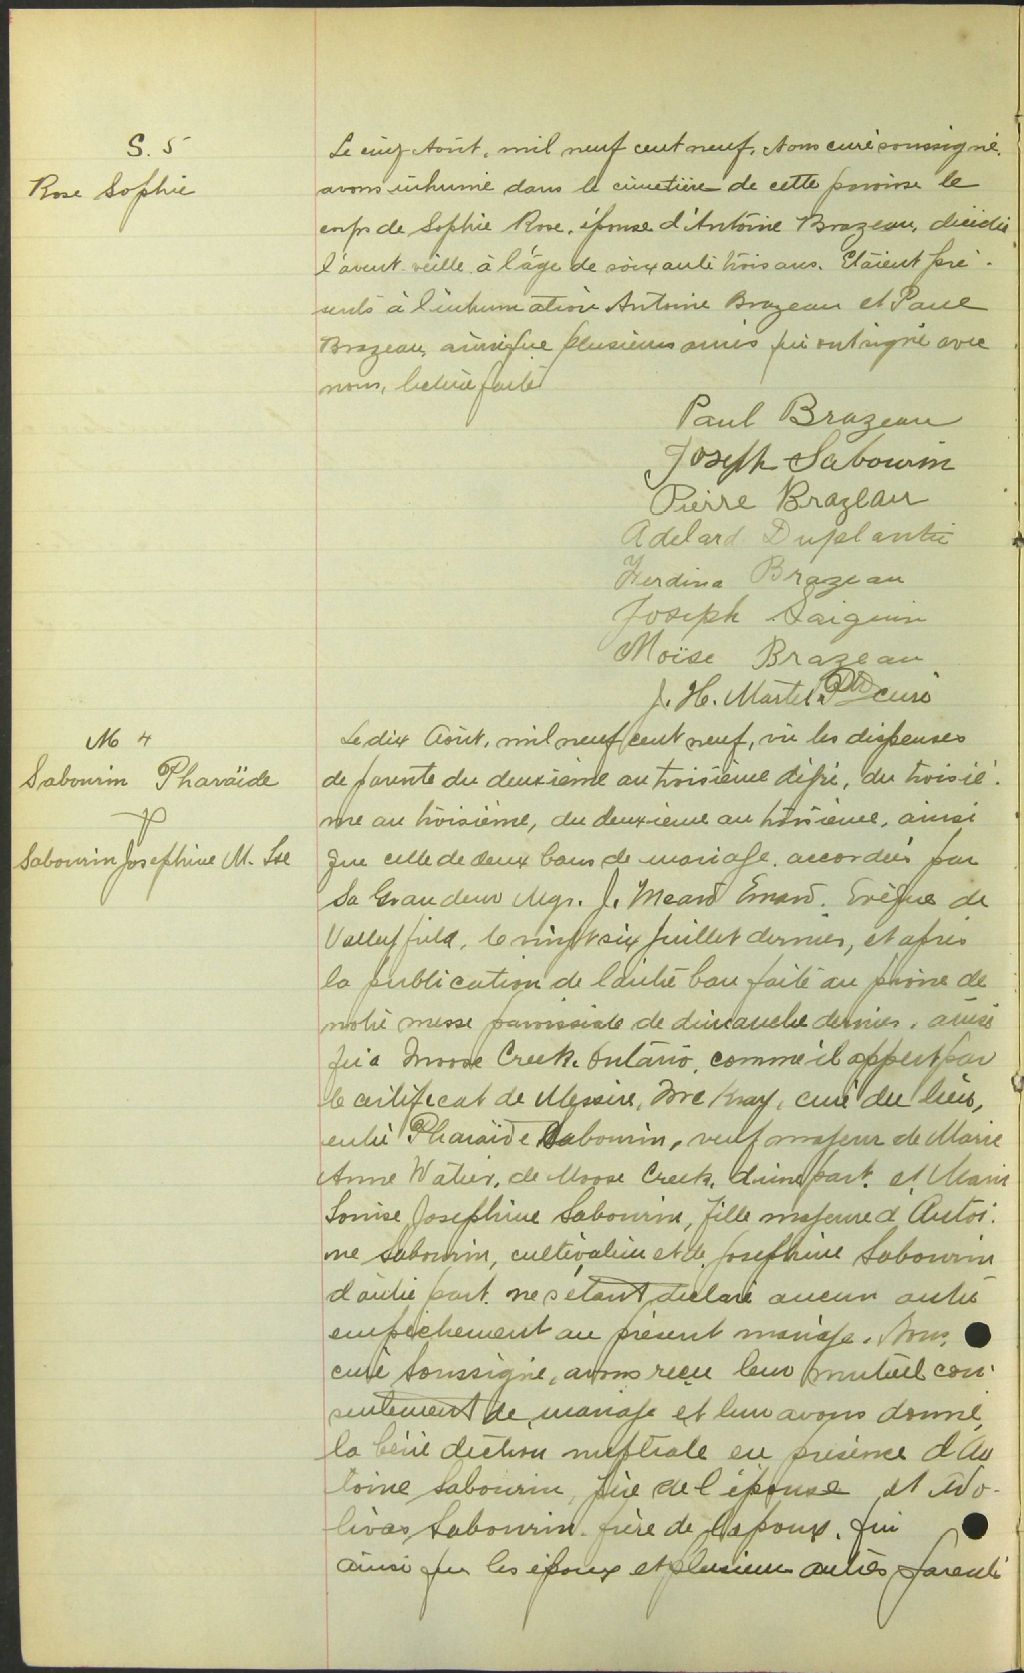 S. 5
Rose Sophie
Le cinq Août, mil neuf cent neuf, Nous curé soussigné,
avons inhumé dans le cimetière de cette paroisse le
corps de Sophie Rose, épouse d'Antoine Brazeau, décédée
l'avant-veille à l'âge de soixante trois ans. Etaient pré-
sents à l'inhumation Antoine Brazeau et Paul
Brazeau, ainsi que plusieurs amis qui ont signé avec
nous, lecture faite
Paul Brazeau
Joseph Sabourin
Pierre Brazeau
Adelard Duplantie
Ferdina Brazeau
Joseph Seiguin
Moïse Brazeau
J. H. Martel Ptre curé
M 4
Sabourin Pharaïde
&
Sabourin Josephine M. Lse
Le dix Août, mil neuf cent neuf, vu les dispenses
de parenté du deuxième au troisième dégré, du troisiè-
me au troisième, du deuxième au troisième, ainsi
que celle de deux bans de mariage, accordées par
Sa Grandeur Mgr. J. Meard Emard, Evêque de
Valleyfield, le vingt six Juillet dernier, et après
la publication de l'autre ban faite au prône de
notre messe paroissiale de dimanche dernier, ainsi
qu'à Moose Creek, Ontario, comme il appert par
le certificat de Messire, curé du lieu,
entre Pharaïde Sabourin, veuf majeur de Marie
Anne Watier, de Moose Creek, d'une part, et Marie
Louise Josephine Sabourin, fille majeure d'Antoi-
ne Sabourin, cultivateur et de Josephine Sabourin
d'autre part, ne s'étant déclaré aucun autre
empêchement au présent mariage, Nous,
curé soussigné, avons reçu leur mutuel con-
sentement de mariage et leur avons donné,
la bénédiction nuptiale en présence d'An
toine Sabourin, père de l'épouse et
livas Sabourin, frère de l'époux, qui
ainsi que les époux et plusieurs autres parents